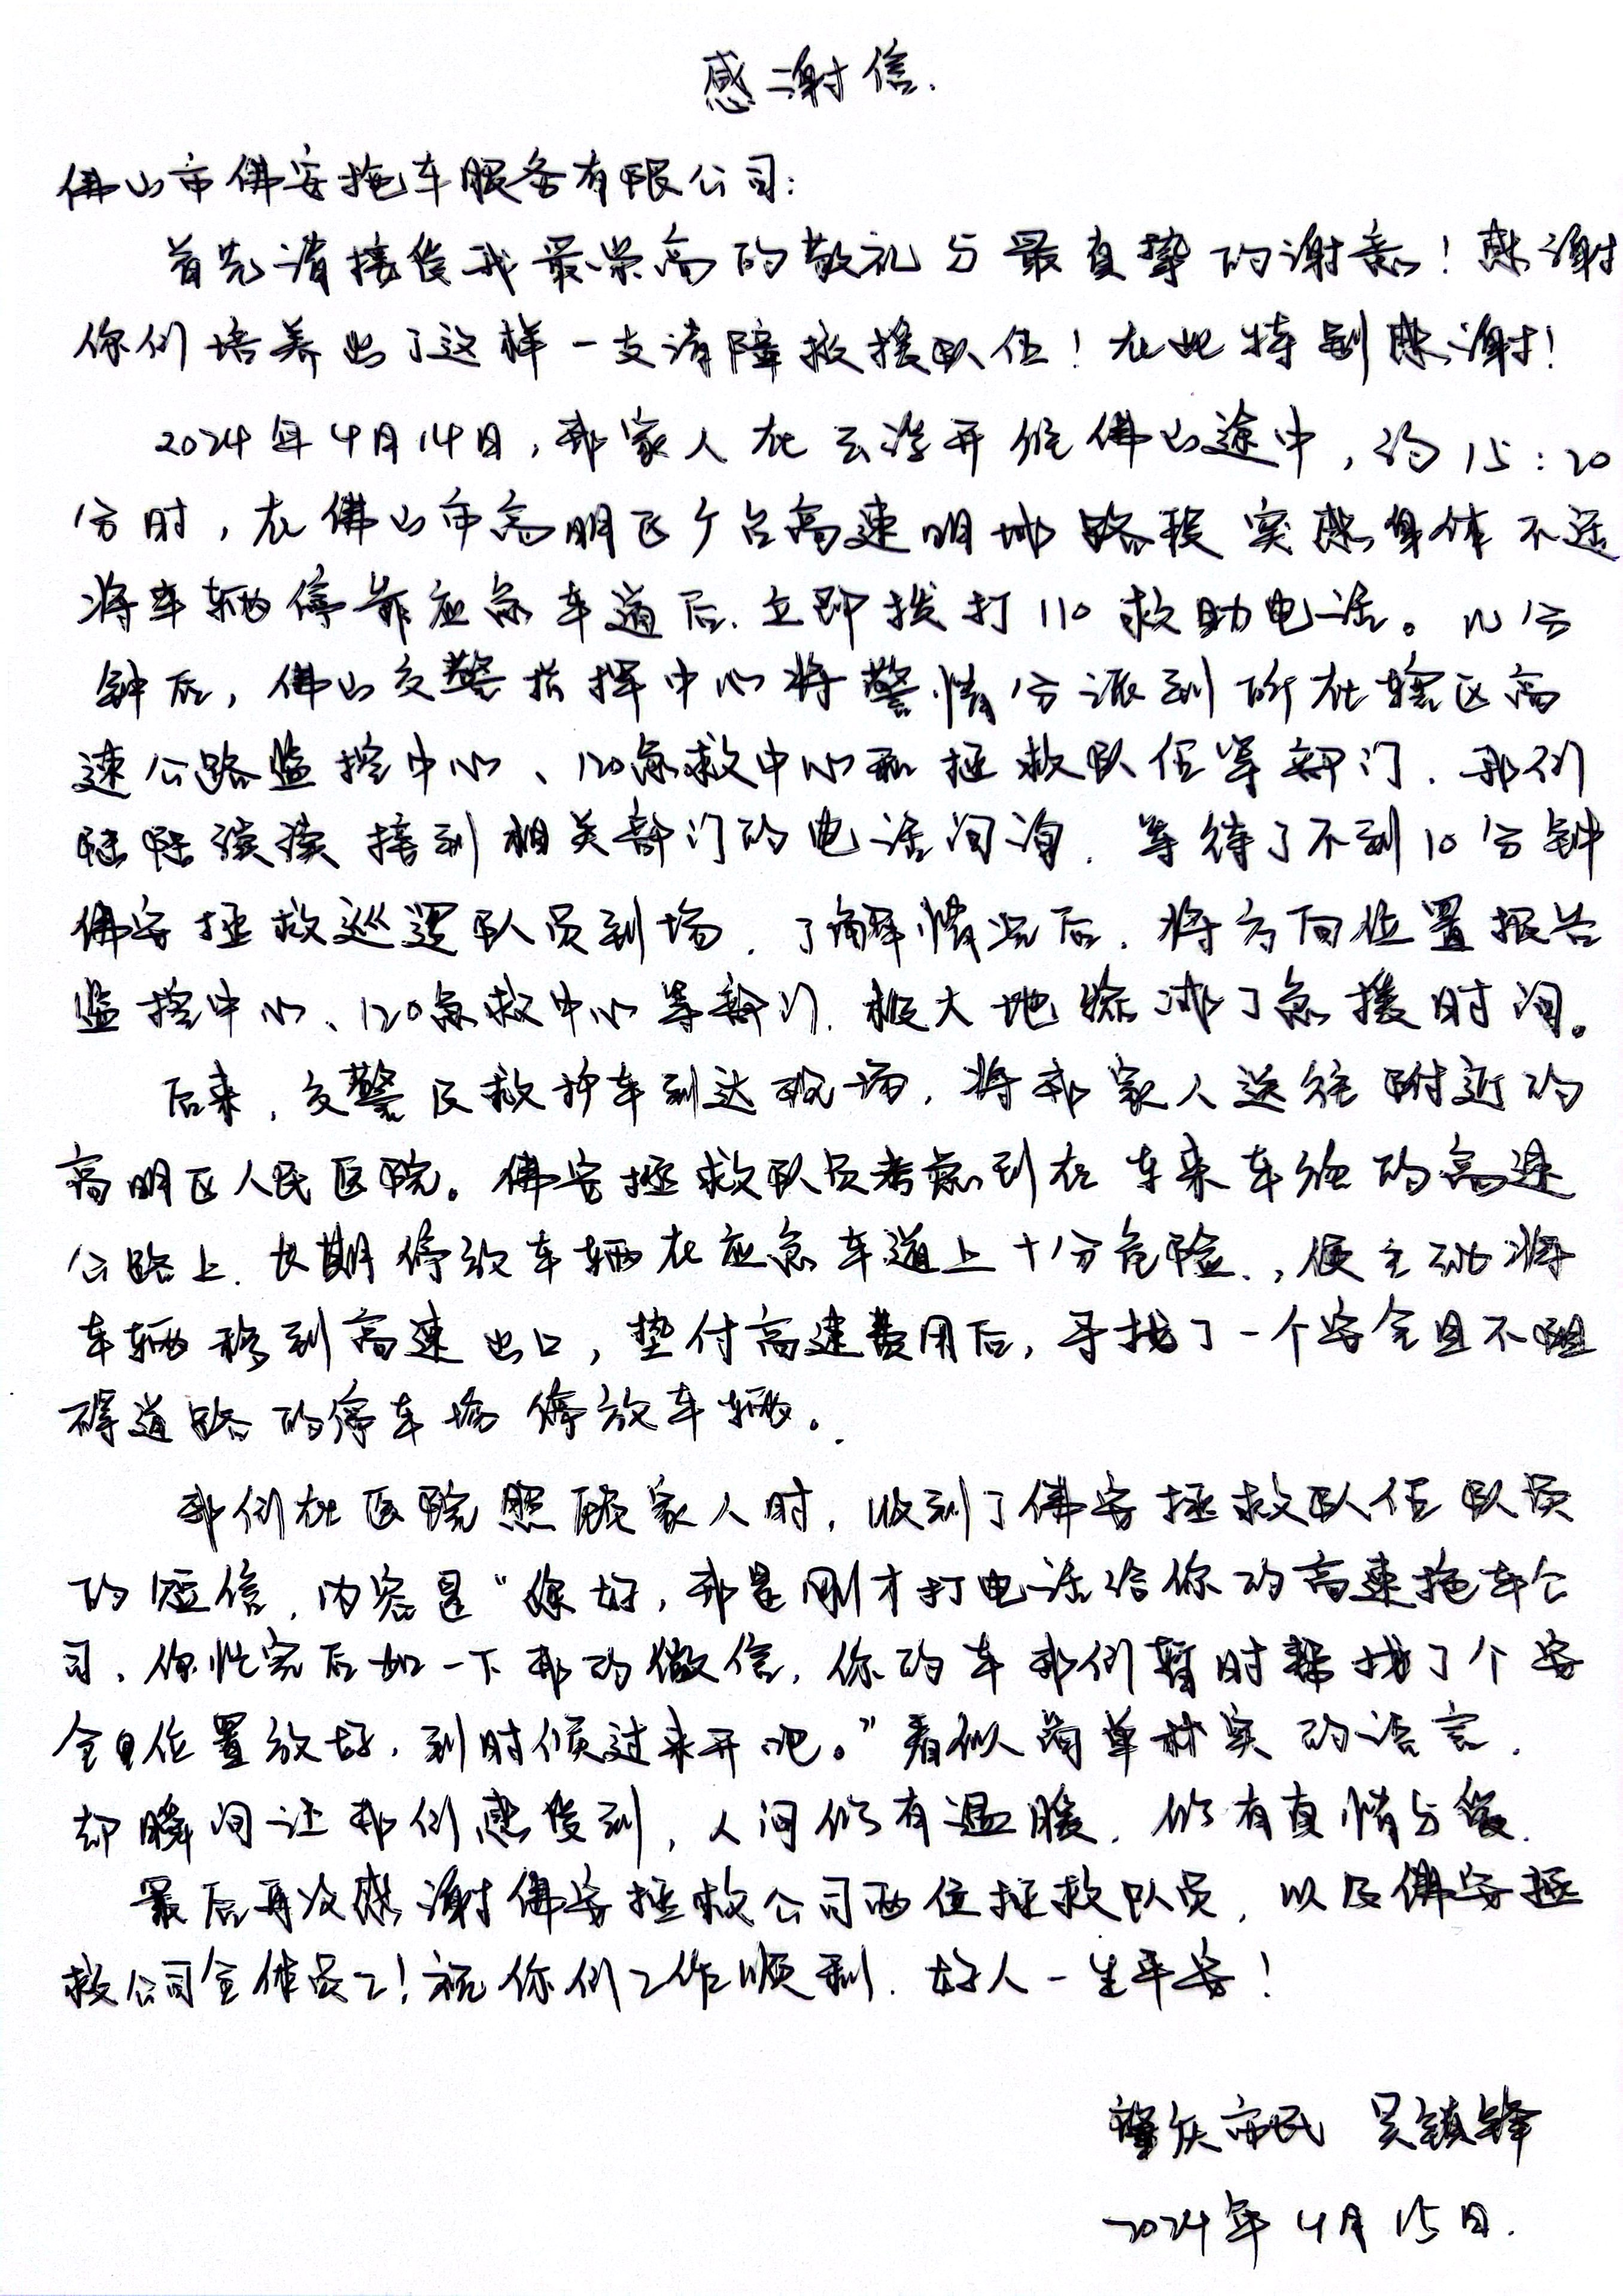 感谢信.
佛山市佛安拖车服务有限公司:
首先请接受我最崇高的敬礼与最真挚的谢意！感谢
你们培养出了这样一支清障救援队伍！在此特别感谢！
2024年4月14日，我家人在云浮开往佛山途中，约15:20
分时，在佛山市高明区广台高速明城路段突感身体不适
将车辆停靠应急车道后.立即拨打110救助电话。几分
钟后，佛山交警指挥中心将警情分派到所在辖区高
速公路监控中心、120急救中心和拯救队伍等部门.我们
陆陆续续接到相关部门的电话问询.等待了不到10分钟
佛安拯救巡逻队员到场.了解情况后.将方向位置报告
监控中心、120急救中心等部门.极大地缩减了急援时间。
后来，交警及救护车到达现场，将我家人送往附近的
高明区人民医院。佛安拯救队员考虑到在车来车往的高速
公路上.长期停放车辆在应急车道上十分危险.，便主动将
车辆移到高速出口，垫付高速费用后，寻找了一个安全且不阻
碍道路的停车场停放车辆。
我们在医院照顾家人时，收到了佛安拯救队伍队员
的短信，内容是“你好，我是刚才打电话给你的高速拖车公
司，你忙完后加一下我的微信，你的车我们暂时帮找了个安
全位置放好，到时候过来开吧。”看似简单朴实的语言，
却瞬间让我们感受到，人间仍有温暖，仍有真情与爱.
最后再次感谢佛安拯救公司两位拯救队员，以及佛安拯
救公司全体员工！祝你们工作顺利.好人一生平安！
肇庆市民 吴镇锋
2024年4月15日.